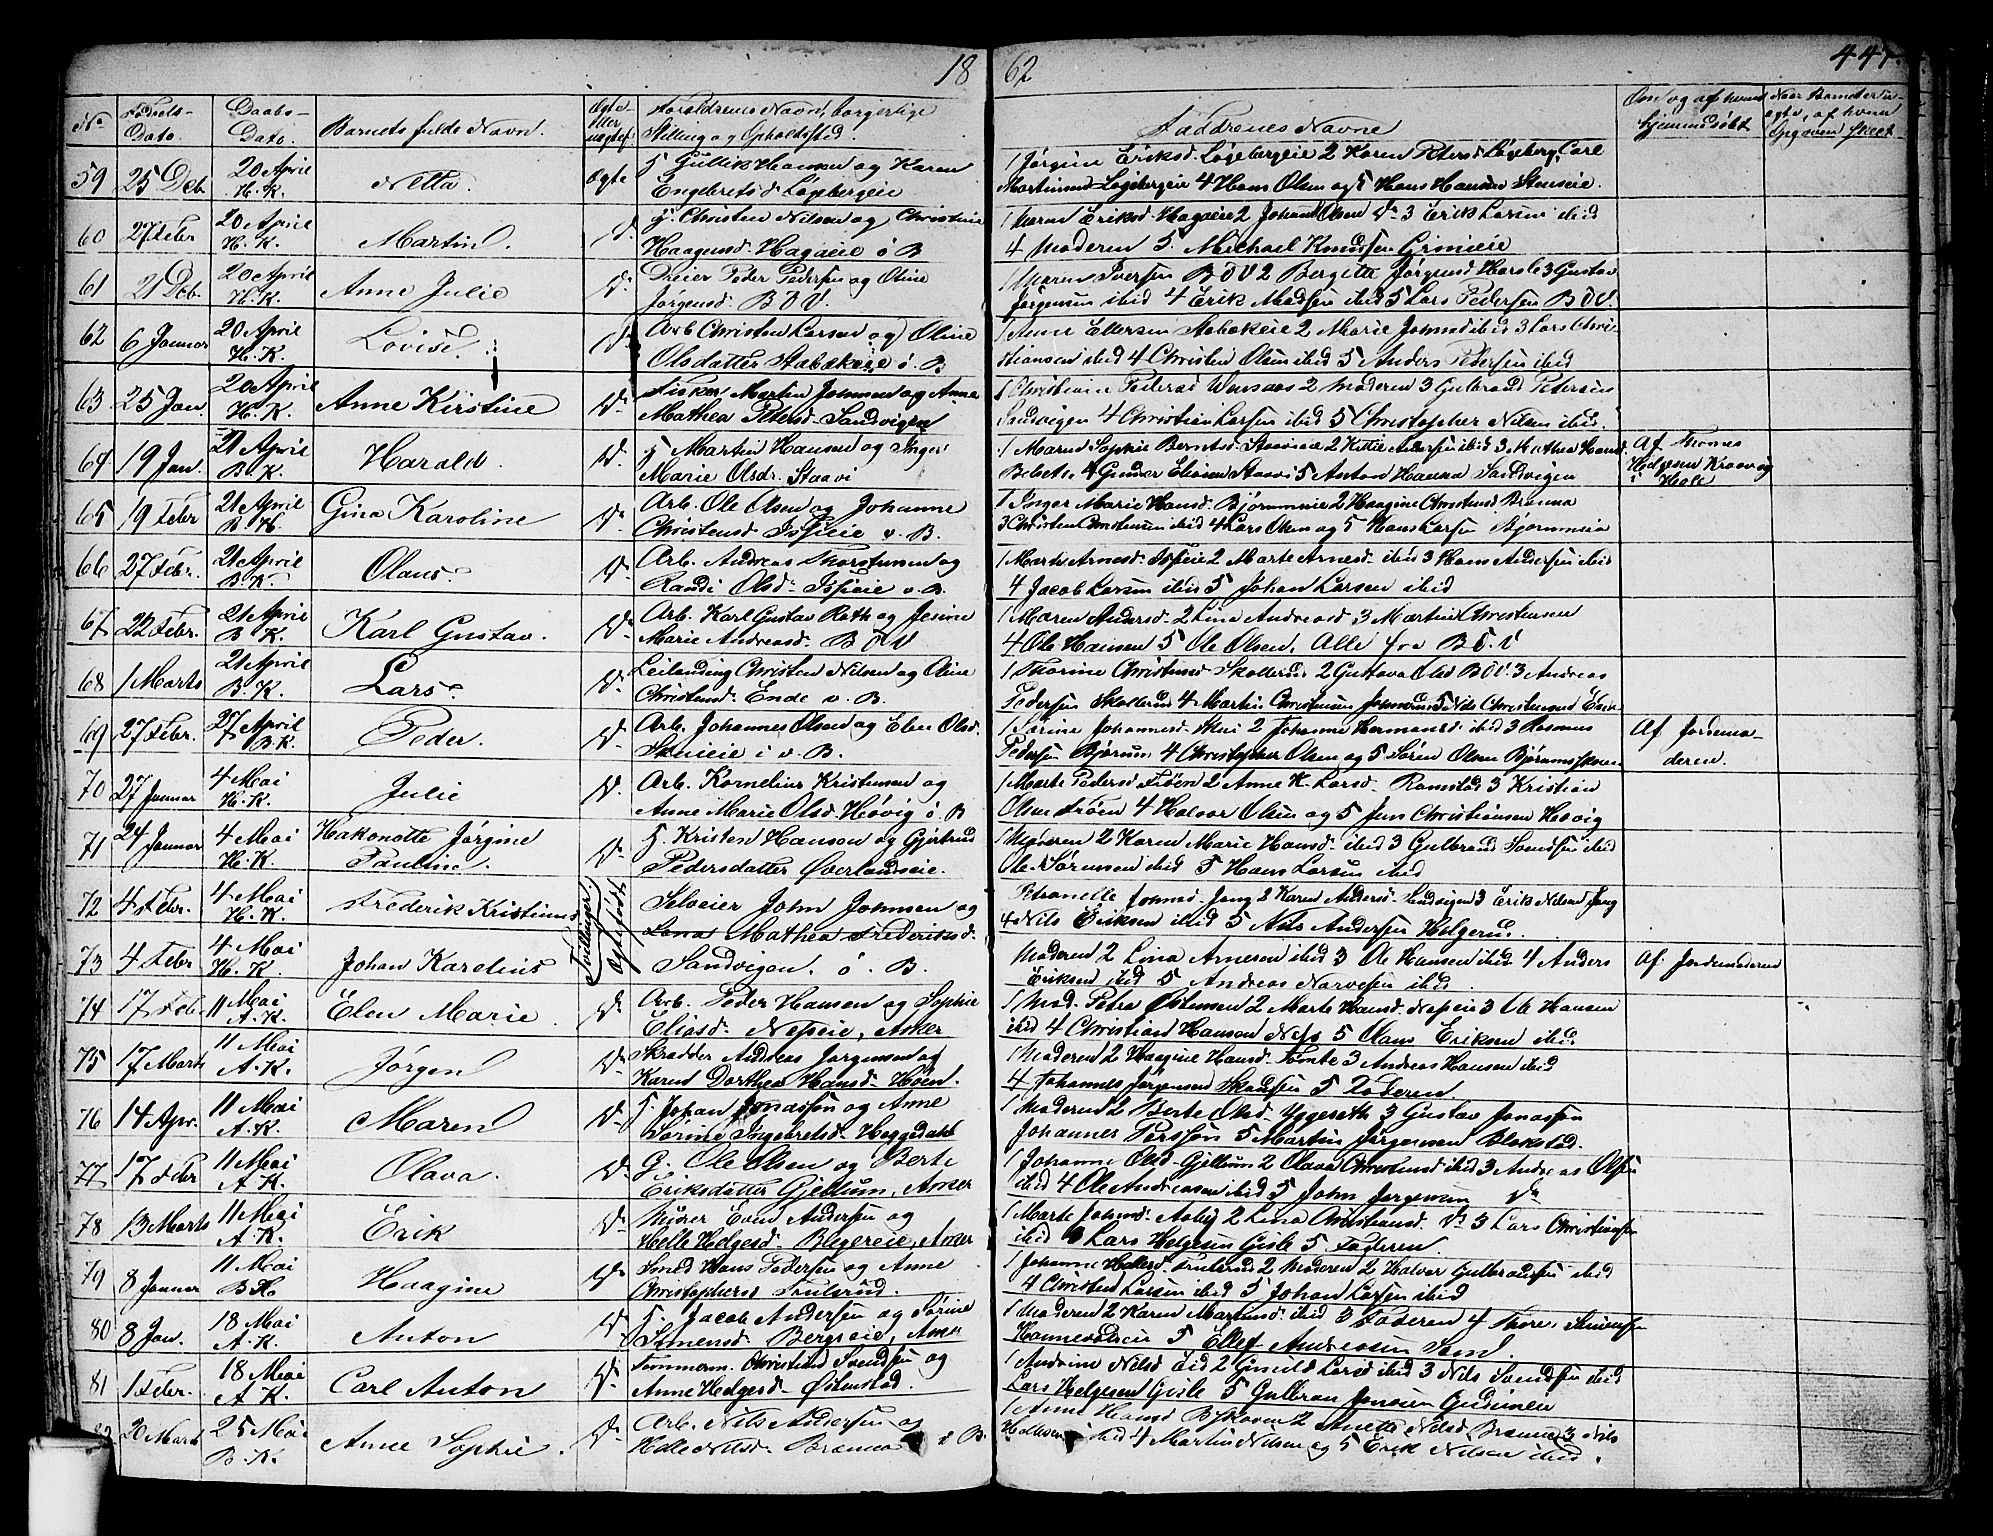 18 62 447.
No Fødsels-Dato. Daabs-Dato. Barnets fulde Navn. Ægte eller uægtef. Forældrenes Navn, borgerlige Stilling og Opholdsted. Faddrenes Navne Om og af hvem hjemmedøbt Naar Barnet er uægte, af hvem Opgaven skeet
59 25 Dcb. 20 April H.K. Netta. Ægte G Gullik Hansen og Karen
Engebretsd Løgebergeie
1 Jørgine Eriksd. Løgebergeie 2 Karen Petersd Løgeberg, Carl
Martinsen Løgebergeie 4 Hans Olsen og 5 Hans Hansen Stenseie.
60 27 Febr 20 April H.K. Martin. Do. G. Christen Nilsen og Christine
Haagensd. Hagaeie ø B
1 Maren Eriksd. Hagaeie 2 Johan Olsen Do 3 Erik Larsen ibid
4 Moderen 5. Michael Knudsen Grinieie
61 21 Dcb. 20 April H.K. Anne Julie Do. Dreier Peder Pedersen og Oline
Jørgensd. B Ø V.
1 Maren Iversen B Ø V 2 Bergitte Jørgensd Hasle 3 Gustav
Jørgensen ibid 4 Erik Madsen ibid 5 Lars Pedersen B Ø V.
62 6 Januar 20 April H.K. Lovise. Do. Arb Christen Larsen og Oline
Olsdatter Stabækeie ø. B
1 Anne Ellersen Stabækeie 2 Marie Johnsd ibid 3 Lars Chri-
stiansen ibid 4 Christen Olsen ibid 5 Anders Pedersen ibid
63 25 Jan 20 April H.K. Anne Kirstine Do. Fisker Martin Johnsen og Anna
Mathea Petersd. Sandvigen
1 Christiane Pedersd Wensaas 2 Moderen 3 Gulbrand Petersen
Sandvigen 4 Christian Larsen ibid 5 Christopher Nilsen ibid.
64 19 Jan. 21 April B.K. Harald. Do. G Martin Hansen og Inger
Marie Olsdr. Staavi
1 Maren Sophie Berntsd. Staavieie 2 Kitte Andersen ibid 3 Mathea Hansd
Belset 4 Gunder Eliasen Staavi 5 Anton Hansen Sandvigen
Af Thomas
Helgesen Kroevig
i Hole
65 19 Febr 21 April B.K. Gina Karoline Do. Arb. Ole Olsen og Johanne
Christensd. Ispieie v. B.
1 Inger Marie Hansd. Bjørnmeie 2 Haagine Christensd Brænna
3 Christen Christensen ibid 4 Lars Olsen og 5 Hans Larsen Bjørnmeie
66 27 Febr. 21 April B.K. Olaus. Do. Arb. Andreas Thorstensen og
Randi Olsd. Ispieie v. B.
1 Marte Arnesd. Ispeie 2 Marte Arnesd. ibid 3 Hans Andersen ibid
4 Jacob Larsen ibid 5 Johan Larsen ibid
67 22 Febr. 21 April B.K. Karl Gustav. Do. Arb. Karl Gustav Rath og Jesine
Marie Andreasd. B Ø V
1 Maren Andersd. 2 Lina Andreasd 3 Martin Christensen
4 Ole Hansen 5 Ole Olsen, Alle fra B Ø. V
68 1 Marts 21 April B.K. Lars. Do. Leilending Christen Nilsen og Oline
Christensd. Ende v. B.
1 Thorine Christensd Skollerud 2 Gustava Olsd B Ø V. 3 Andreas
Pedersen Skollerud 4 Martin Christensen 5 Nils Christensen Ende
69 27 Febr. 27 April B.K. Peder. Do. Arb. Johannes Olsen og Elen Olsd.
Skuieie i v. B.
1 Sørine Johannesd. Skui 2 Johanne Hermansd. ibid 3 Rasmus
Pedersen Bjørum 4 Christopher Olsen og 5 Søren Olsen Bjørumskoven
Af Jordemo-
deren.
70 27 Januar 4 Mai H.K. Julie Do. Arb. Kornelius Kristensen og
Anne Marie Olsd. Høvig ø. B
1 Marte Pedersd Trøen 2 Anne K. Larsd. Ramstad 3 Kristian
Olsen Trøen 4 Halvor Olsen og 5 Jens Christiansen Høvig
71 24 Januar 4 Mai H.K. Hakonotte Jørgine
Pauline. Do. G. Kristen Hansen og Gjertrud
Pedersdatter Øverlandseie.
1 Moderen 2 Karen Marie Hansd. ibid 3 Gulbrand Svendsen ibid
Ole Sørensen ibid 5 Hans Larsen ibid
72 4 Febr. 4 Mai H.K. Frederik Kristinus Tvillinger Ægtefødt Selveier John Johnsen og
Lena Mathea Frederiksd.
Petronelle Johnsd. Jong 2 Karen Andersd. Sandvigen 3 Erik Nilsen Jong
4 Nils Eriksen ibid 5 Nils Andersen Helgerud.
73 4 Febr 4 Mai H.K. Johan Karelius Sandvigen. ø. B.
Moderen 2 Lina Arnesen ibid 3 Ole Hansen ibid. 4 Anders
Eriksen ibid 5 Andreas Narvesen ibid.
Af Jordemoderen
74 17 Febr 11 Mai A.K. Elen Marie Do. Arb. Peder Hansen og Sophie
Eliasd. Nespeie, Asker
1 Mod. Petra Østensen 2 Marte Hansd. Nespeie 3 Ole Hansen
ibid 4 Christian Hansen Næs 5 Olaus Eriksen ibid.
75 17 Marts 11 Mai A.K. Jørgen Do. Skrædder Andreas Jørgensen og
Karen Dorthea Hansd. Hoen.
1 Moderen 2 Haagine Hansd. Tomte 3 Andreas Hansen ibid
4 Johannes Jørgensen 5 Faderen
76 14 Apr. 11 Mai A.K. Maren Do. G. Johan Jonassen og Anne
Sørine Ingebretsd. Heggedahl
1 Moderen 2 Berte Olsd. Yggeseth 3 Gustav Jonassen
Johannes Perssøn 5 Martin Jørgensen Blakstad.
77 17 Febr 11 Mai A.K. Olava. Do. G. Ole Olsen og Berte
Eriksdatter Gjellum, Asker
1 Johanne Olsd. Gjellum 2 Olava Christensd ibid 3 Andreas Olsen
ibid 4 Ole Andreasen ibid 5 John Jørgensen Do
78 13 Marts 11 Mai A.K. Erik Do. Mejerer Even Andersen og
Helle Helgesd. Bergereie, Asker
1 Marte Johnsd. Asby 2 Lina Christiansd. Do 3 Lars Christiansen
ibid 4 Lars Helgesen Gisle 5 Faderen.
79 8 Januar 11 Mai B.K. Haagine Do. Smed Hans Pedersen og Anne
Christophersd Tanlerud.
1 Johanne Hellesd. Tanlerud 2 Moderen 2 Halvor Gulbrandsen ibid
4 Christen Larsen ibid 5 Johan Larsen ibid
80 8 Jan. 18 Mai A.K. Anton Do. G. Jacob Andersen og Sørine
Simensd. Bergseie, Asker
1 Moderen 2 Karen Martinsd. ibid 3 Faderen 4 Thore Simensen
Hannevoldseie 5 Ellef Andreassen Sem.
81 1 Febr. 18 Mai A.K. Carl Anton Do. Tømmerm. Christian Svendsen og
Anne Helgesd. Østenstad.
1 Andrine Nilsd Eid 2 Gunild Larsd ibid 3 Nils Svendsen ibid
Lars Helgesen Gisle 5 Gulbran Jensen Gudimeie
82 20 Marts 25 Mai B.K. Anne Sophie. Do. Arb. Nils Andersen og
Helle Nilsd. Brænna v B.
1 Anne Hansd Bjskoven 2 Anette Nilsd Brænna 3 Nils
Hellesen ibid 4 Martin Nilsen og 5 Erik Nilsen ibid.